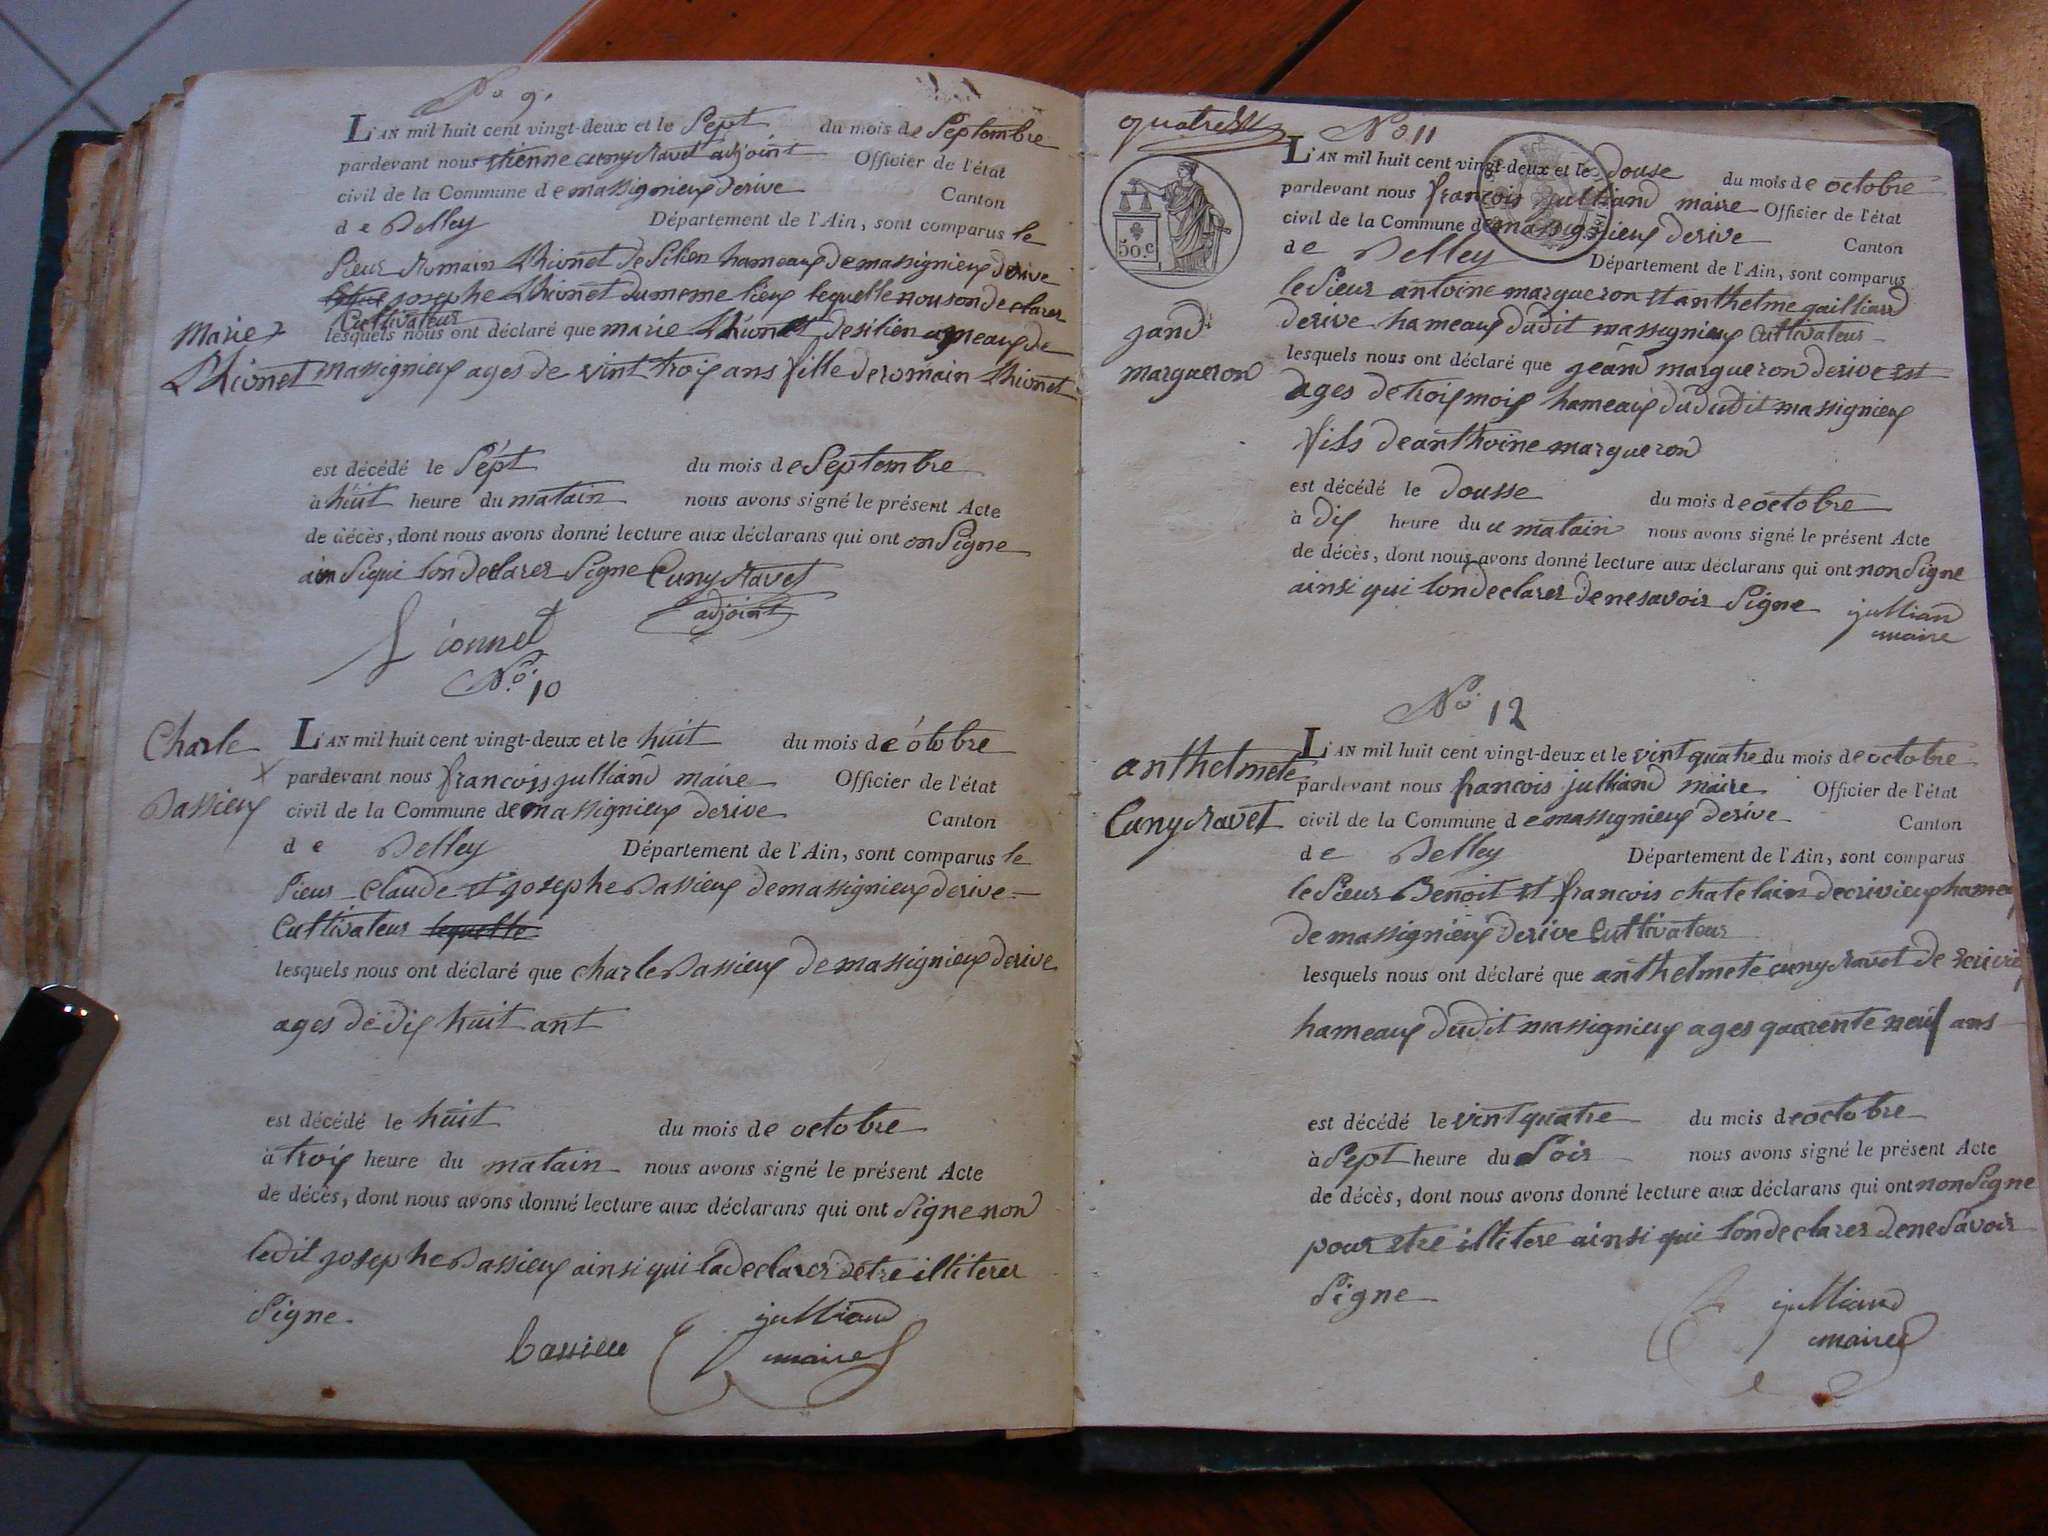 No 9.
L'AN mil huit cent vingt-deux et le Sept du mois de Septembre
pardevant nous etienne cuny ravet adjoint Officier de l'état
civil de la Commune de massignieux derive Canton
de Belley Département de l'Ain, sont comparus le
Sieur Romain Lhionnet de Silien hameaux de massignieux derive
josephe Lhionnet du meme lieux lequelle nous on declarer
Cultivateur
lesquels nous ont déclaré que marie Lhionnet de silien ameaux de
Marie
Lhionnet massignieux ages de vint trois ans fille de romain Lhionnet
est décédé le Sept du mois de Septembre
à huit heure du matain nous avons signé le présent Acte
de décès, dont nous avons donné lecture aux déclarans qui ont on Signe
ain Si qui lon declarer Signe Cuny Ravet
adjoint
Lionnet
No. 10
Charle
Bassieux
L'AN mil huit cent vingt-deux et le huit du mois de óctobre
pardevant nous francois julliand maire Officier de l'état
civil de la Commune de massignieux derive Canton
de Belley Département de l'Ain, sont comparus le
Sieur Claude et josephe Bassieux de massignieux derive
Cultivateur lequelle
lesquels nous ont déclaré que charle Bassieux de massignieux derive
ages de dix huit ant
est décédé le huit du mois de octobre
à trois heure du matain nous avons signé le présent Acte
de décès, dont nous avons donné lecture aux déclarans qui ont Signe non
ledit josephe Bassieux ainsi qui la declarer detre illiterer
Signe.
bassieu
julliand
maire
quatre
50.c
No 11
L'AN mil huit cent vingt-deux et le douse du mois de octobre
pardevant nous francois julliand maire Officier de l'état
civil de la Commune de massignieux derive Canton
de Belley Département de l'Ain, sont comparus
le Sieur antoine margueron et anthelme gailliard
derive hameaux dudit massignieux Cultivateur
jand
margueron
lesquels nous ont déclaré que jeand margueron derive est
ages de trois mois hameaux du dudit massignieux
fils de anthoine margueron
est décédé le dousse du mois de octobre
à dix heure du matain nous avons signé le présent Acte
de décès, dont nous avons donné lecture aux déclarans qui ont non Signe
ainsi qui lon declarer de ne savoir Signe julliand
maire
No 12
anthelmete
Cuny Ravet
L'AN mil huit cent vingt-deux et le vint quatre du mois de octobre
pardevant nous francois julliand maire Officier de l'état
civil de la Commune de massignieux derive Canton
de Belley Département de l'Ain, sont comparus
le Sieur Benoit et francois chatelain de crivieux hameau
de massignieux derive Cultivateur
lesquels nous ont déclaré que anthelmete cuny ravet de
hameaux dudit massignieux ages quarente neuf ans
est décédé le vint quatre du mois de octobre
à Sept heure du Soir nous avons signé le présent Acte
de décès, dont nous avons donné lecture aux déclarans qui ont non Signe
pour etre illitere ainsi qui londeclarer de ne Savoir
Signe
julliand
maire